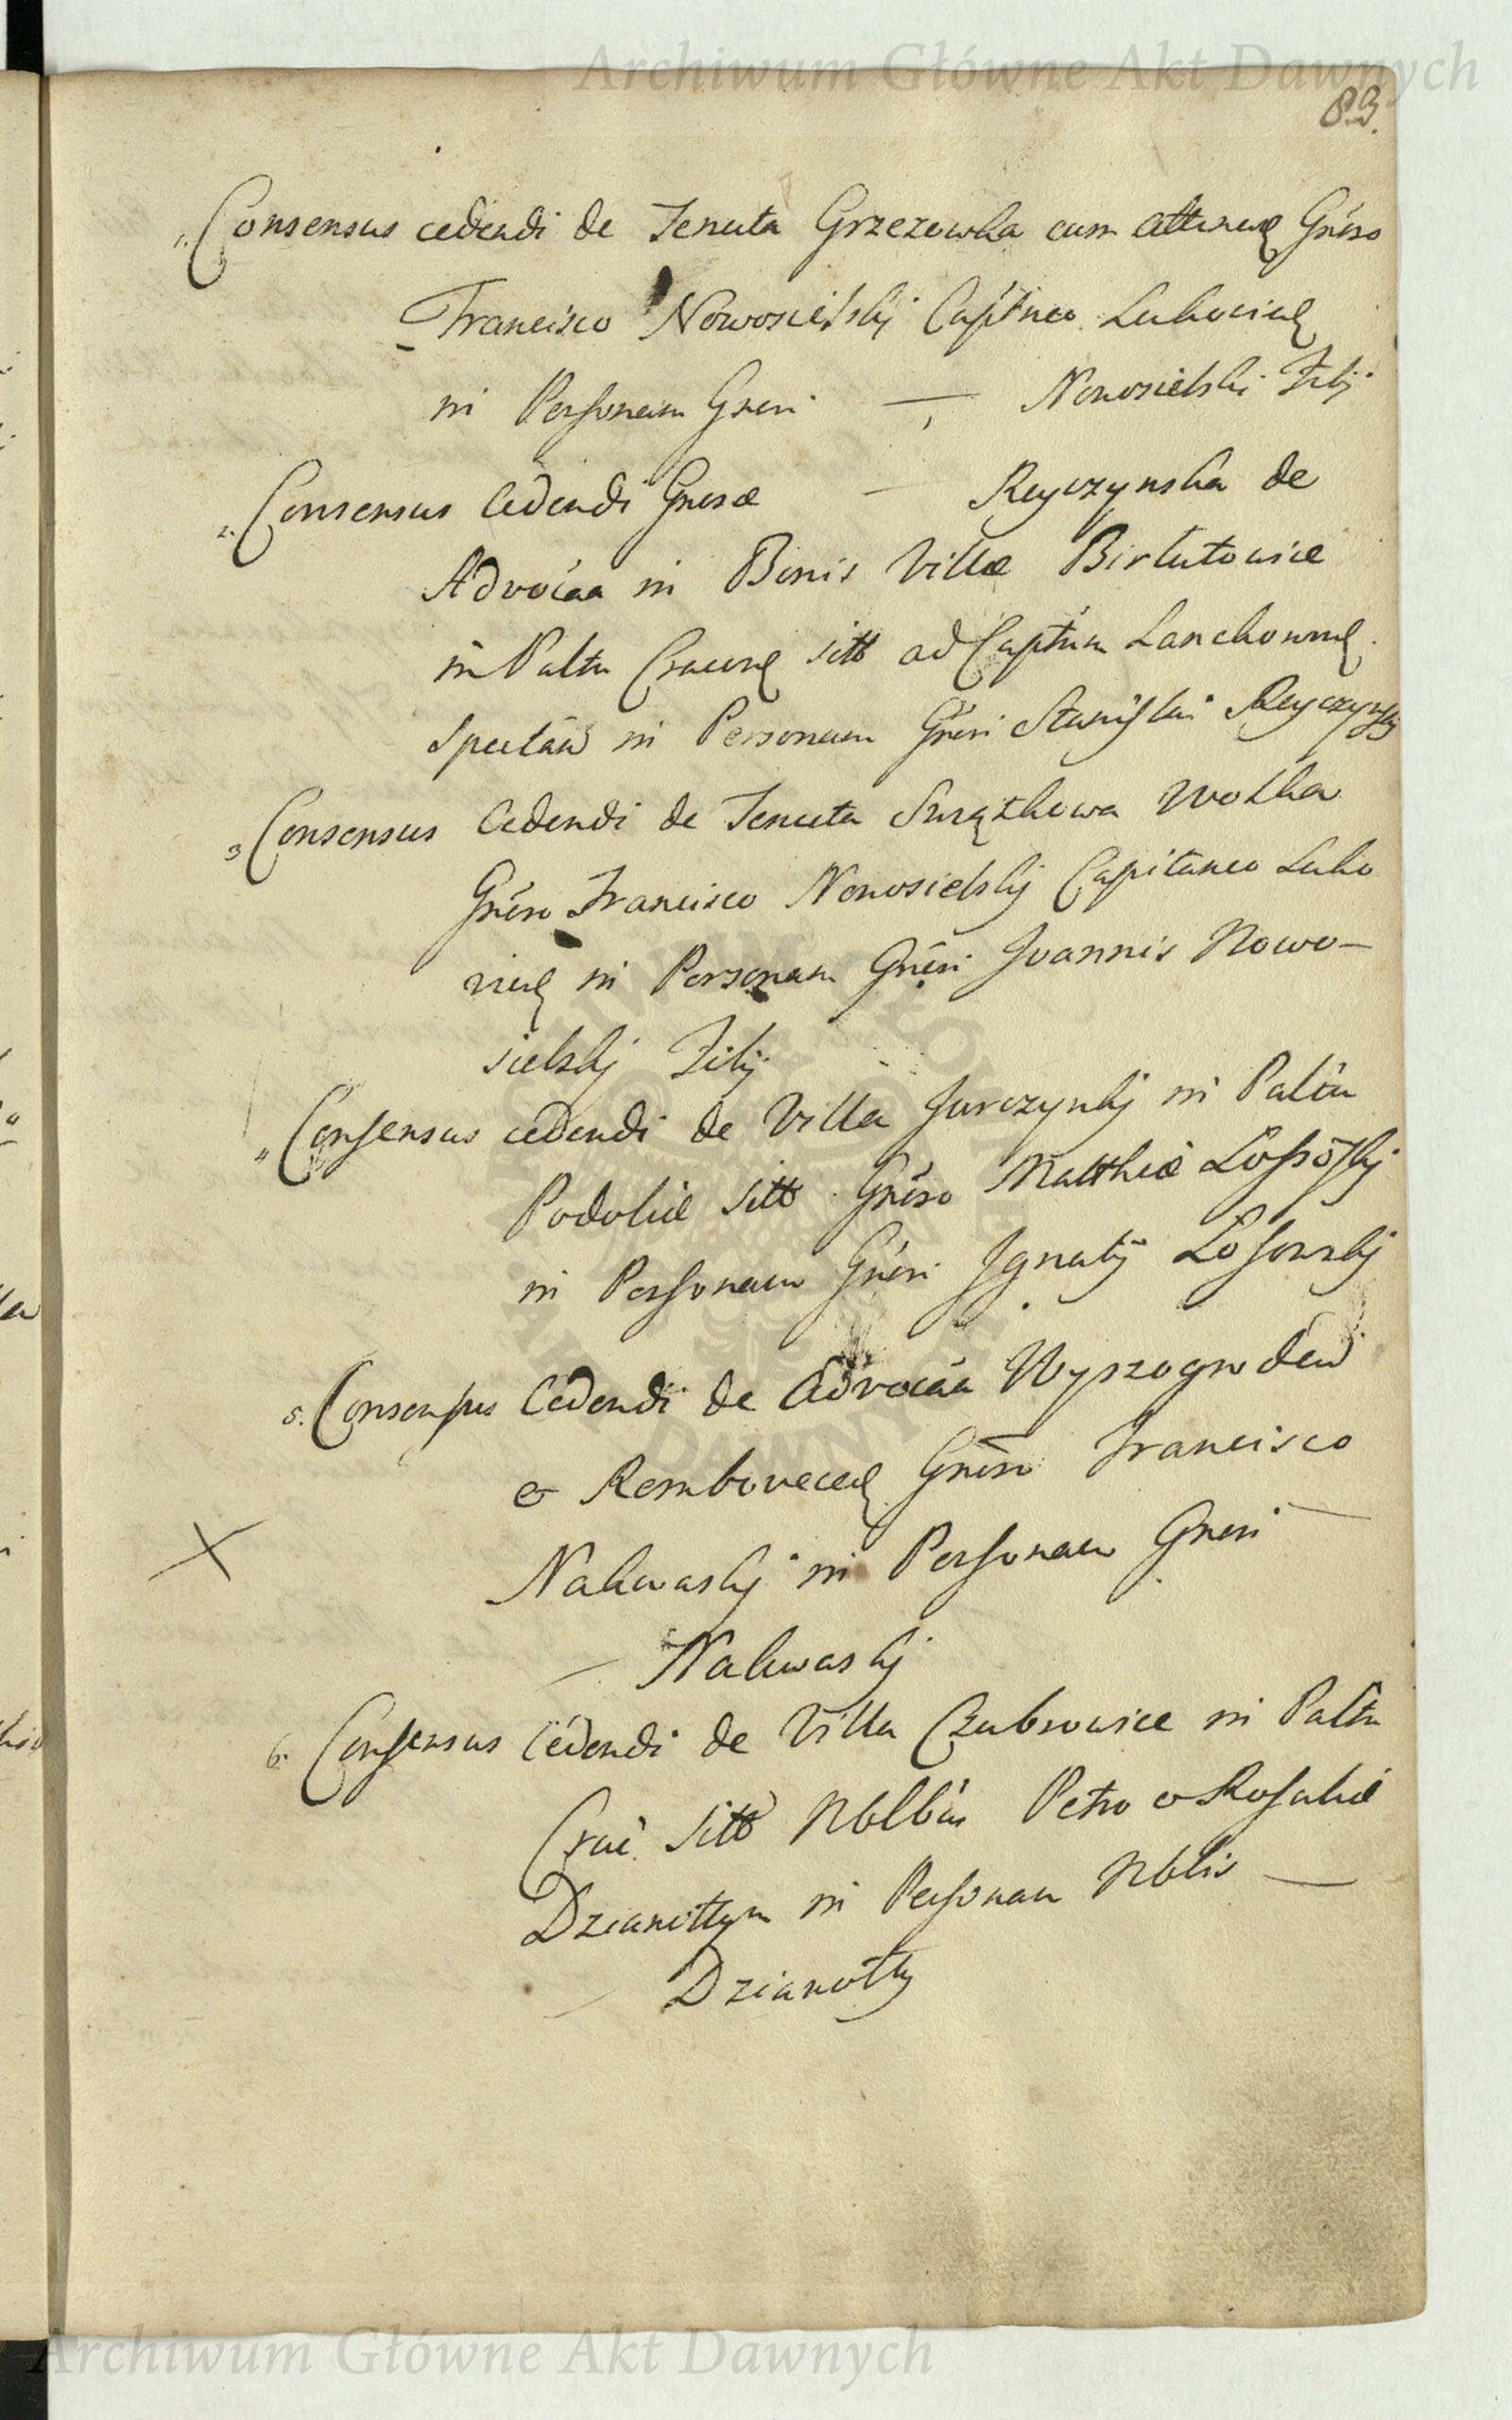 Archiwum Główne Akt Dawnych
83.
1. Consensus cedendi de Tenuta Grzezowka cum Attinen Gnêso
Francisco Nowosielskij Captneo Lukovien
in Personam Gnesi — Nowosielski Filij
2. Consensus Cedendi Gnesæ — Reyczynska de
Advocãa in Bonis Villæ Birlutowice
in Paltu Cracvn sitt ad Captum Lanckownen
Spectañ in Personam Gnêsi Stanislai Reyczynskij
3 Consensus Cedendi de Tenuta Swiązkowa Wolka
Gnêso Francisco Nowosielskij Capitaneo Luko
vien in Personam Gnêsi Joannis Nowo-
sielskij Filij
4 Consensus cedendi de Villa Jurczynkij in Paltu
Podoliæ sitt Gnêso Matthiæ Lossôskij
in Personam Gnêsi Ignatij Losowskij
5. Consensus Cedendi de Advocãa Wyszogroden
& Rembovecen Gnêso Francisco
Nakwaskij in Personam Gnesi —
— Nakwaskij
6. Consensus Cedendi de Villa Czubrowice in Paltu
Craĉ sitt Nbllbûs Petro & Rosaliæ
Dzianottym in Personam Nblis —
— Dzianotty
ARCHIWUM GŁÓWNE AKT DAWNYCH
Archiwum Główne Akt Dawnych